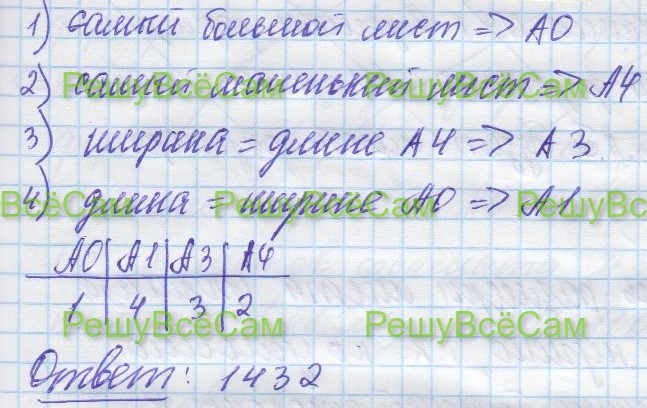 1) самый большой лист => А0
2) самый маленький лист => А4
РешуВсёСам РешуВсёСам
3) ширана = длине А4 => А3
4) длина = ширине А0 => А1
ВсёСам РешуВсёСам РешуВс
А0 | А1 | А3 | А4
1 | 4 | 3 | 2
РешуВсёСам РешуВсёСам
Ответ: 1432